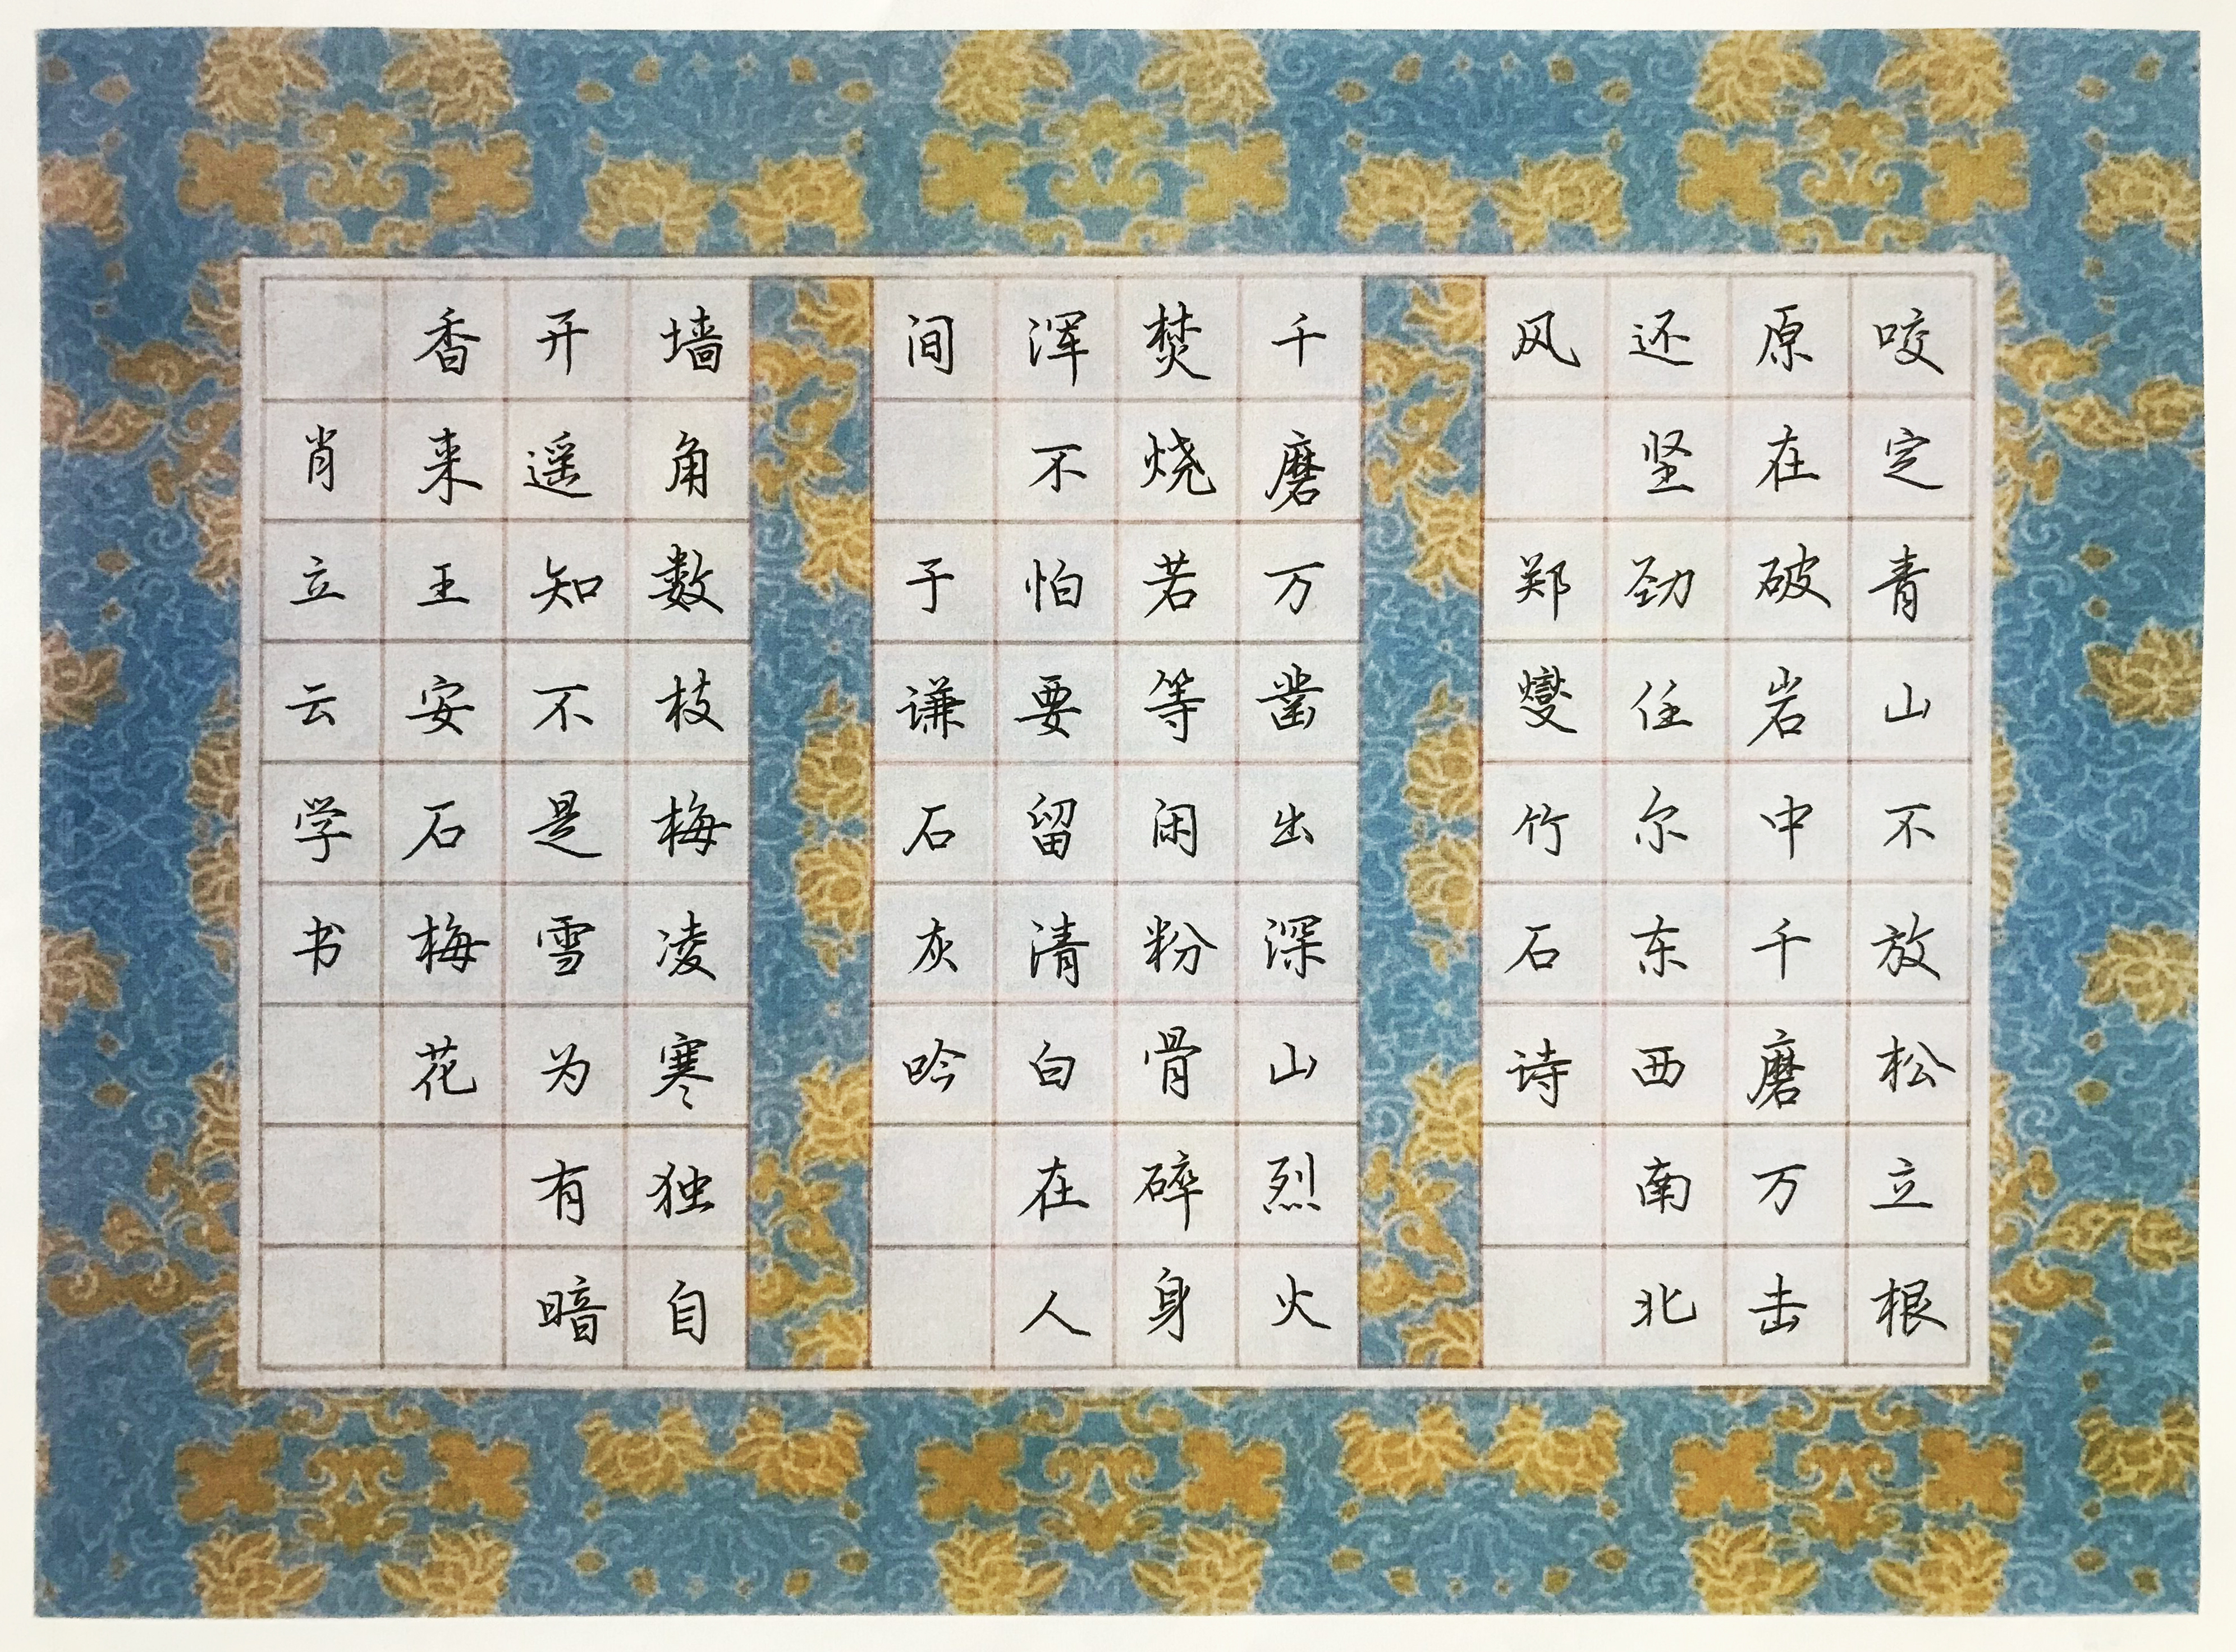 咬定青山不放松立根
原在破岩中千磨万击
还坚劲任尔东西南北
风 郑燮竹石诗
千磨万凿出深山烈火
焚烧若等闲粉骨碎身
浑不怕要留清白在人
间 于谦石灰吟
墙角数枝梅凌寒独自
开遥知不是雪为有暗
香来王安石梅花
肖立云学书